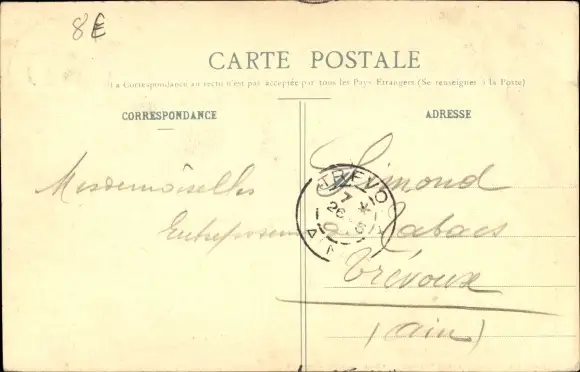 8€
CARTE POSTALE
La Correspondance au recto n'est pas acceptée par tous les Pays Etrangers (Se renseigner à la Poste)
CORRESPONDANCE
ADRESSE
Mesdemoiselles Simond
Entreposeur Tabacs
Trévoux
(Ain)
TREVOUX
7 *
26
AIN